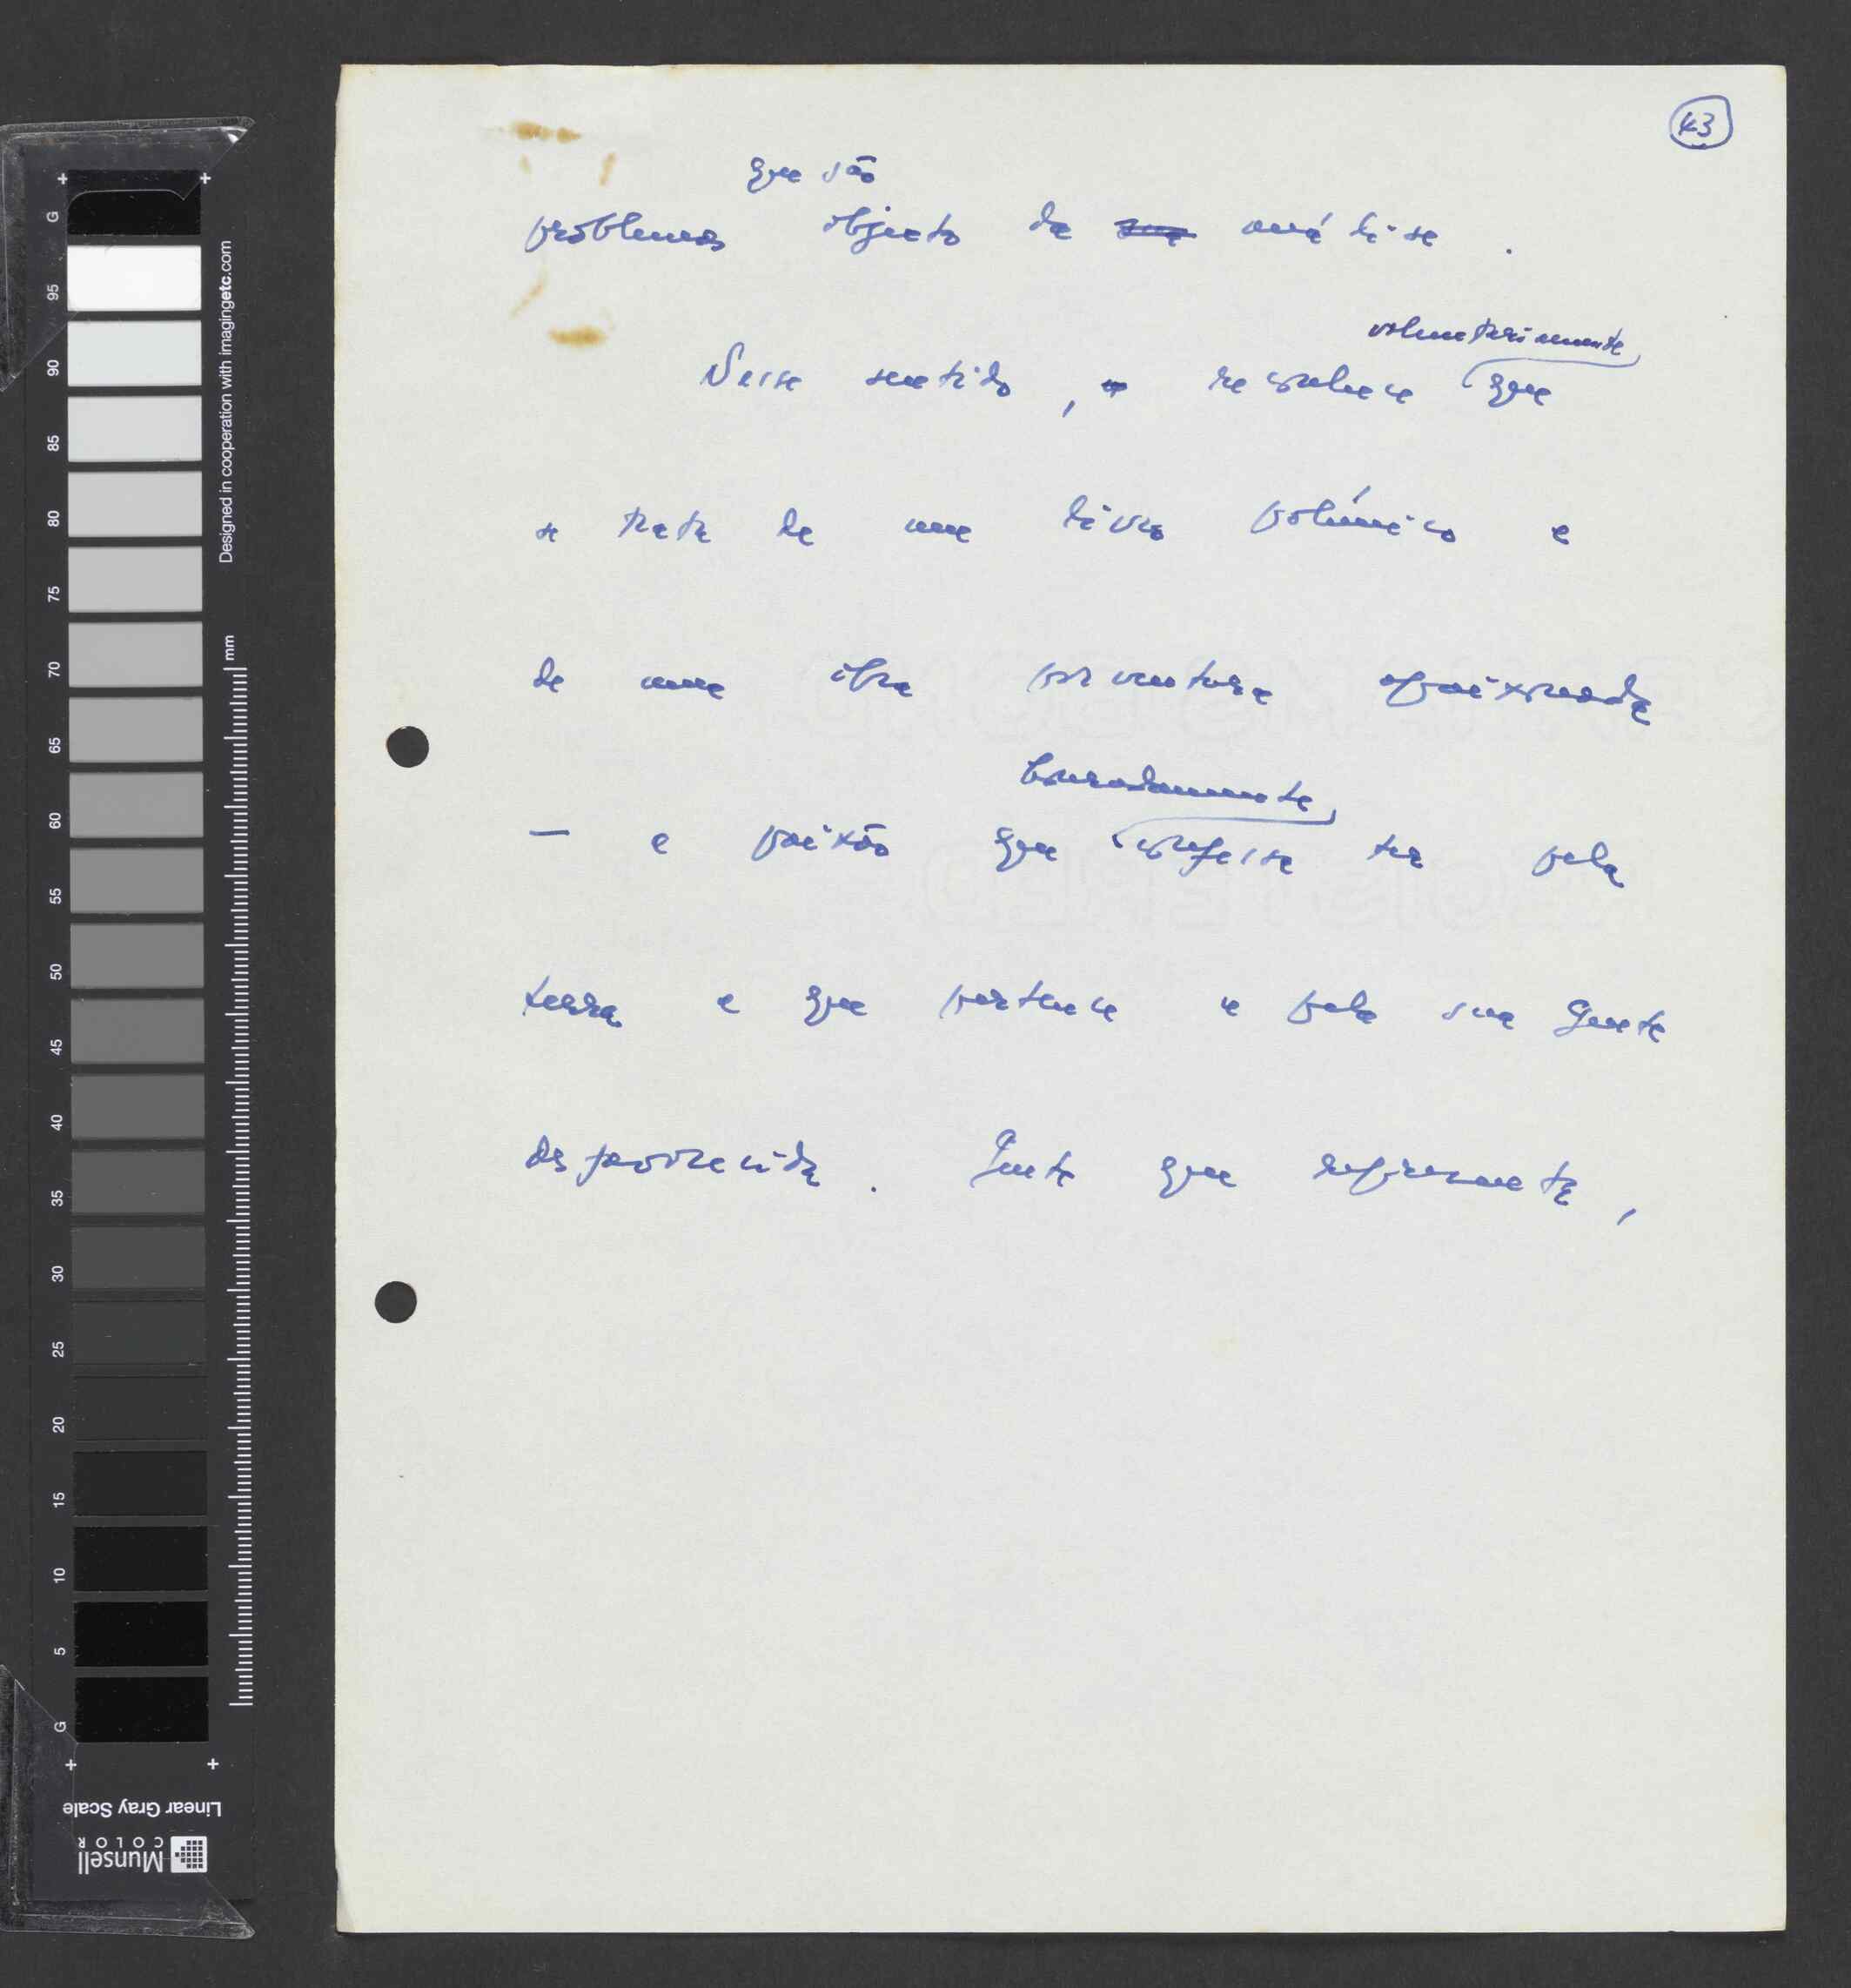 43
que são
problemas objecto da sua análise.
voluntariamente
Nesse sentido, reconhece que
se trata de um livro polémico e
de uma obra porventura apaixonada
honradamente
— a paixão que confessa ter pela
terra a que pertence e pela sua gente
desfavorecida. Gente que representa,
Designed in cooperation with imagingetc.com
mm
G
95
90
85
80
75
70
65
60
55
50
45
40
35
30
25
20
15
10
5
G
Linear Gray Scale
Munsell
COLOR